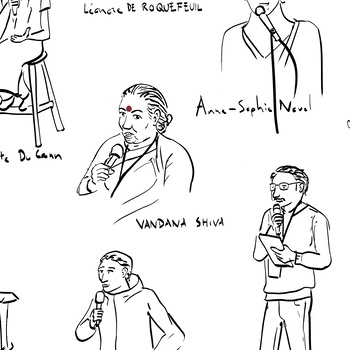 Léonore DE ROQUEFEUIL
Anne-Sophie Novel
Du Cann
VANDANA SHIVA